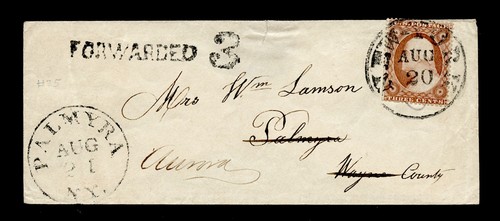 FORWARDED 3
#25
AUG
20
THREE CENTS
Mrs Wm Lamson
Palmyra
Wayne County
Aurora
PALMYRA
AUG
21
N.Y.